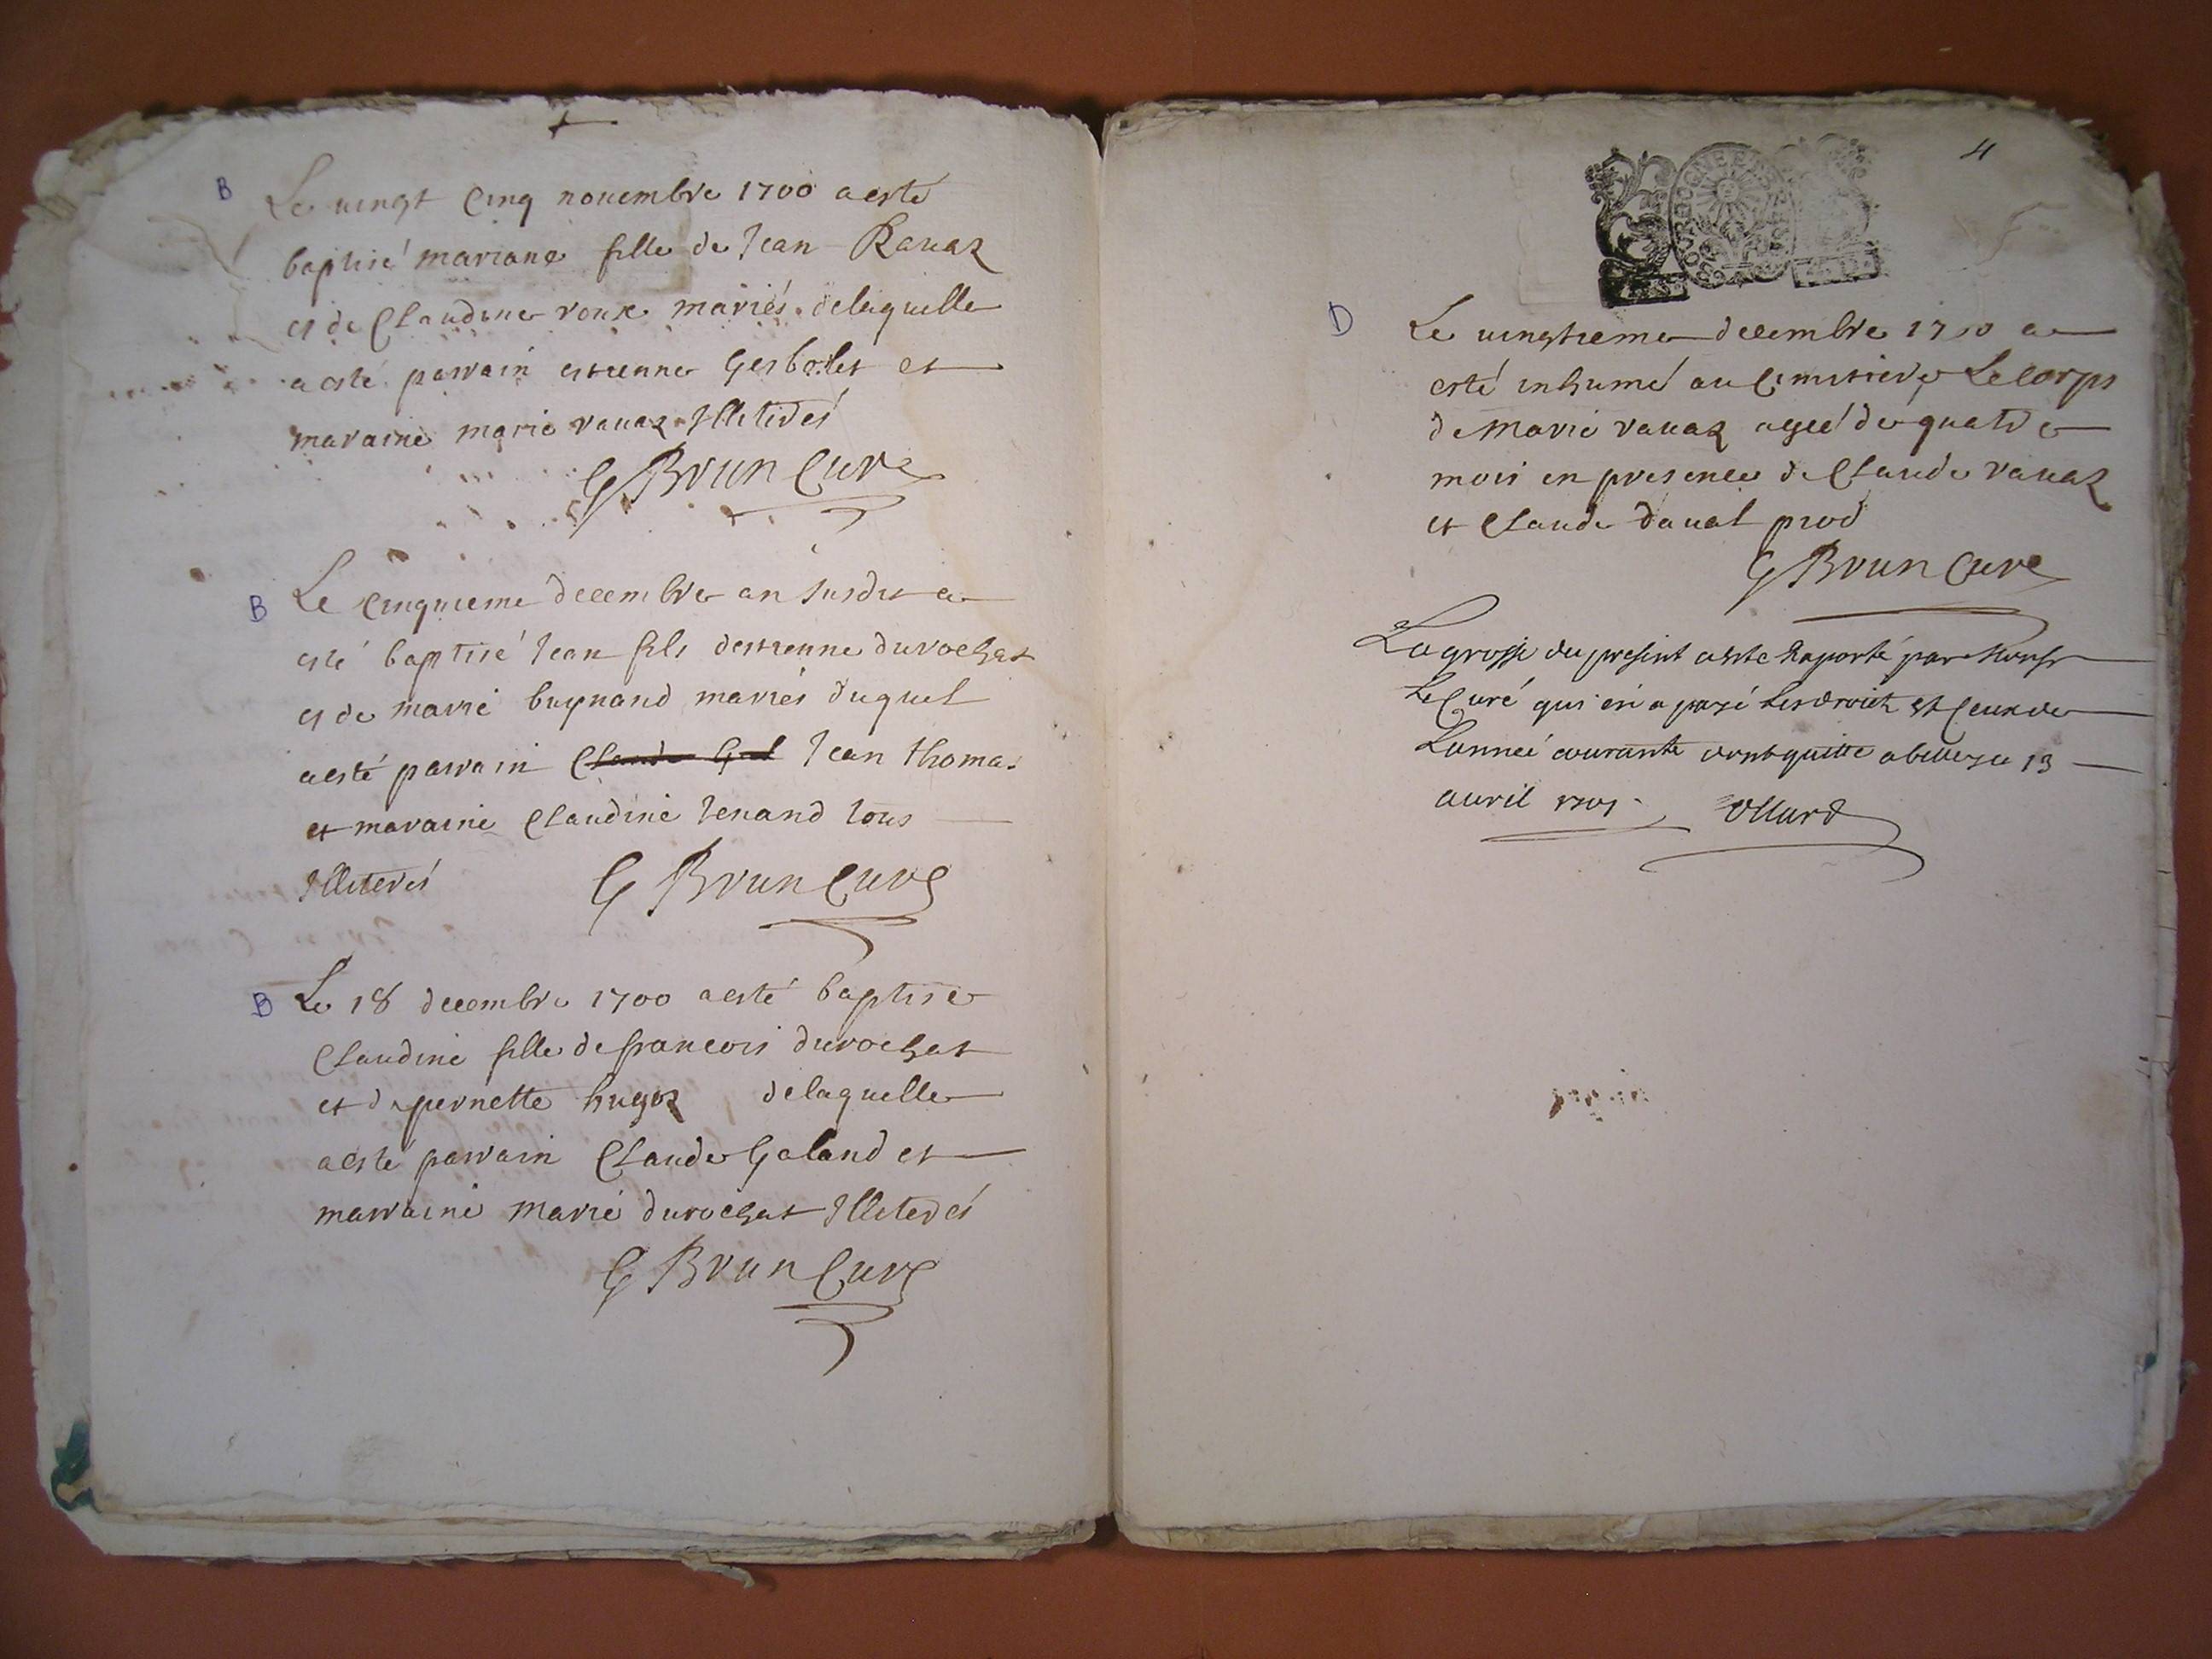 B Le uingt Cinq nouembre 1700 a esté
baptisé mariane fille de Jean Rauaz
et de Claudine roux mariés delaquelle
a esté parrain estienne Gerbolet et
maraine marie rauaz Illiterés
G Brun Curé
B Le Cinquieme decembre an susdit a
esté baptisé Jean fils destienne durochat
et de marie buynand mariés duquel
a esté parrain Claude Gal Jean thomas
et maraine Claudine Jenand tous
Illiterés G Brun Curé
B Le 18 decembre 1700 a esté baptisé
Claudine fille de francois durochat
et de pernette hugoz delaquelle
a esté parrain Claude Galand et
marraine marie durochat Illiterés
G Brun Curé
4
D Le uingtieme decembre 1700 a
esté inhumé au Cimitiere Le corps
de Marie rauaz ageé de quatre
mois en presence de Claude rauaz
et Claude daual
G Brun Curé
La grosse du present a esté Raporté par
Le Curé qui en a payé Les droits et Ceux de
Lanneé courante dont quitte a ce 13
auril 1701